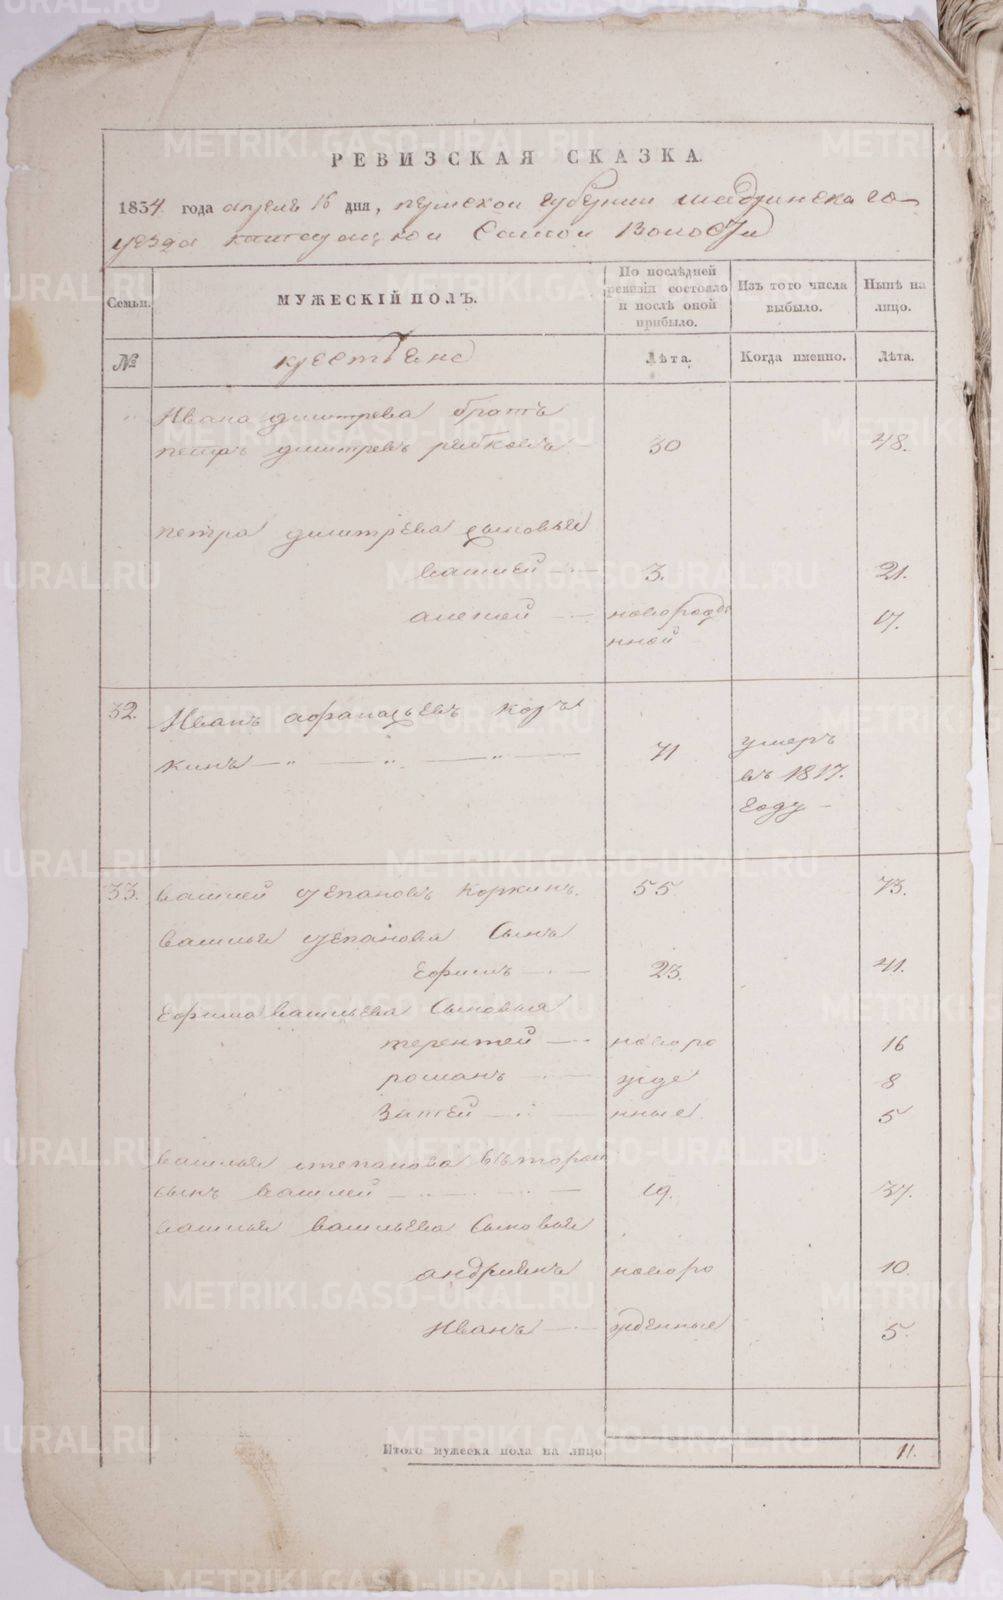 METRIKI.GASO-URAL.RU
РЕВИЗСКАЯ СКАЗКА.
1834 года апреля 16 дня, пермской губернии шадринскаго
уезда Самой Волости
Семьи. МУЖЕСКІЙ ПОЛЪ. По послѣдней ревизіи состояло и послѣ оной прибыло. Изъ того числа выбыло. Нынѣ на лицо.
№ крестьяне Лѣта. Когда именно. Лѣта.
Ивана дмитрева братъ
петръ дмитревъ 30 48.
петра дмитрева сыновья
василей 3. 21.
алексей новорожде 17.
нной
32. Иванъ афанасьевъ кор
кинъ 71 умеръ
въ 1817.
году
33. василей степановъ коркинъ. 55 73.
василья степанова сынъ
ефимъ 23. 41.
ефима васильева сыновья
терентей новоро 16
романъ жде 8
Затей нные 5
василья степанова второй
сынъ василей 19. 37.
василья васильева сыновья
андриянъ новоро 10.
Иванъ жденные 5.
Итого мужеска пола на лицо 11.